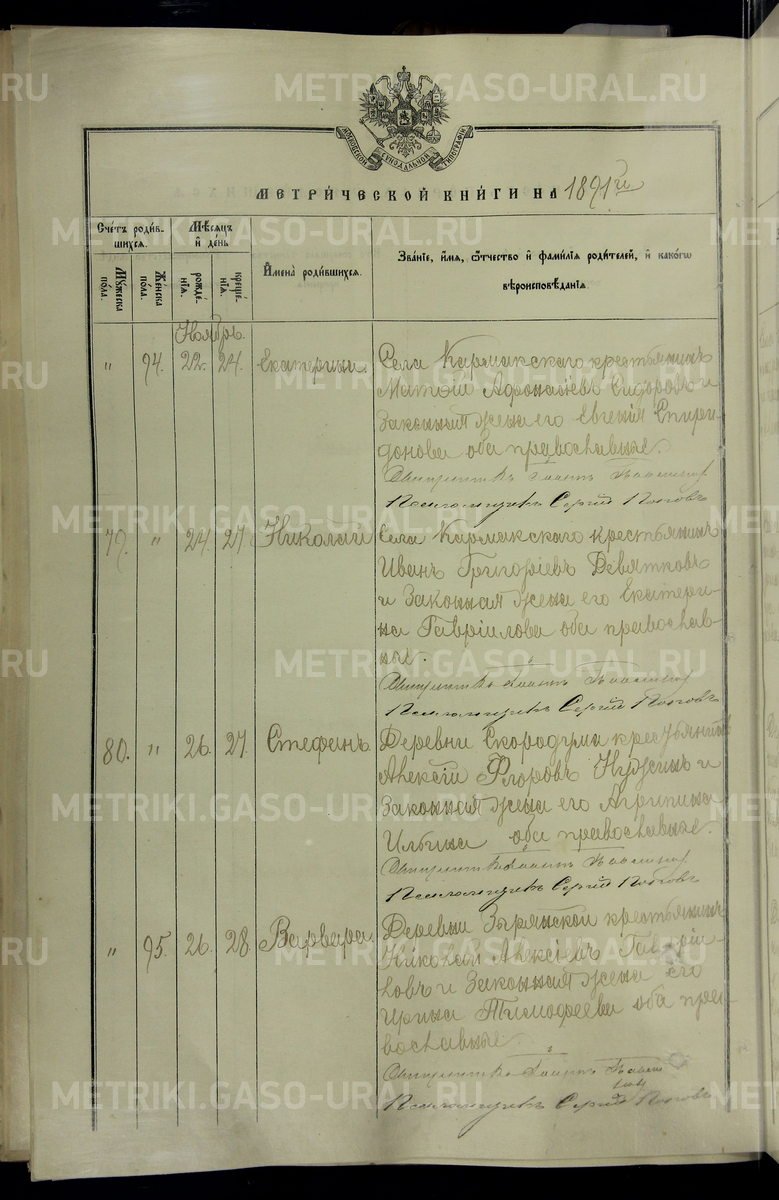 МОСКОВСКОЙ СѴНОДАЛЬНОЙ ТИПОГРАФІИ
МЕТРИ́ЧЕСКОЙ КНИ́ГИ НА 1891 й
Сче́тъ роди́в-
шихся.
Му́жеска по́ла.
Же́нска по́ла.
Мѣ́сяцъ
и де́нь
рожде́-
нія.
креще́-
нія.
И҆мена̀ роди́вшихся.
Зва́ніе, и҆́мя, ѻ҆́тчество и҆ фами́лія роди́телей, и҆ како́гѡ
вѣроисповѣ́данія.
Ноябрь.
" 94. 22. 24. Екатерина.
Села Кармакскаго крестьянинъ
Матѳій Афонасіевъ Сидоровъ и
Законная жена его Евгенія Спири-
донова оба православные.
Псаломщикъ Сергій Поповъ
79. " 24. 27. Николай
Села Кармакскаго крестьянинъ
Иванъ Григоріевъ Девятковъ
и Законная жена его Екатери-
на Гавріилова оба православ-
ные.
Псаломщикъ Сергій Поповъ
80. " 26. 27. Стефанъ
Деревни Скородума крестьянинъ
Алексій Флоровъ и
Законная жена его Агрипина
Ильина оба православные.
Псаломщикъ Сергій Поповъ
" 95. 26. 28. Варвара
Деревни Зырянской крестьянинъ
Николай Алексіевъ Гавріи-
ловъ и Законная жена его
Ирина Тимофеева оба пра-
вославные.
Псаломщикъ Сергій Поповъ
METRIKI.GASO-URAL.RU